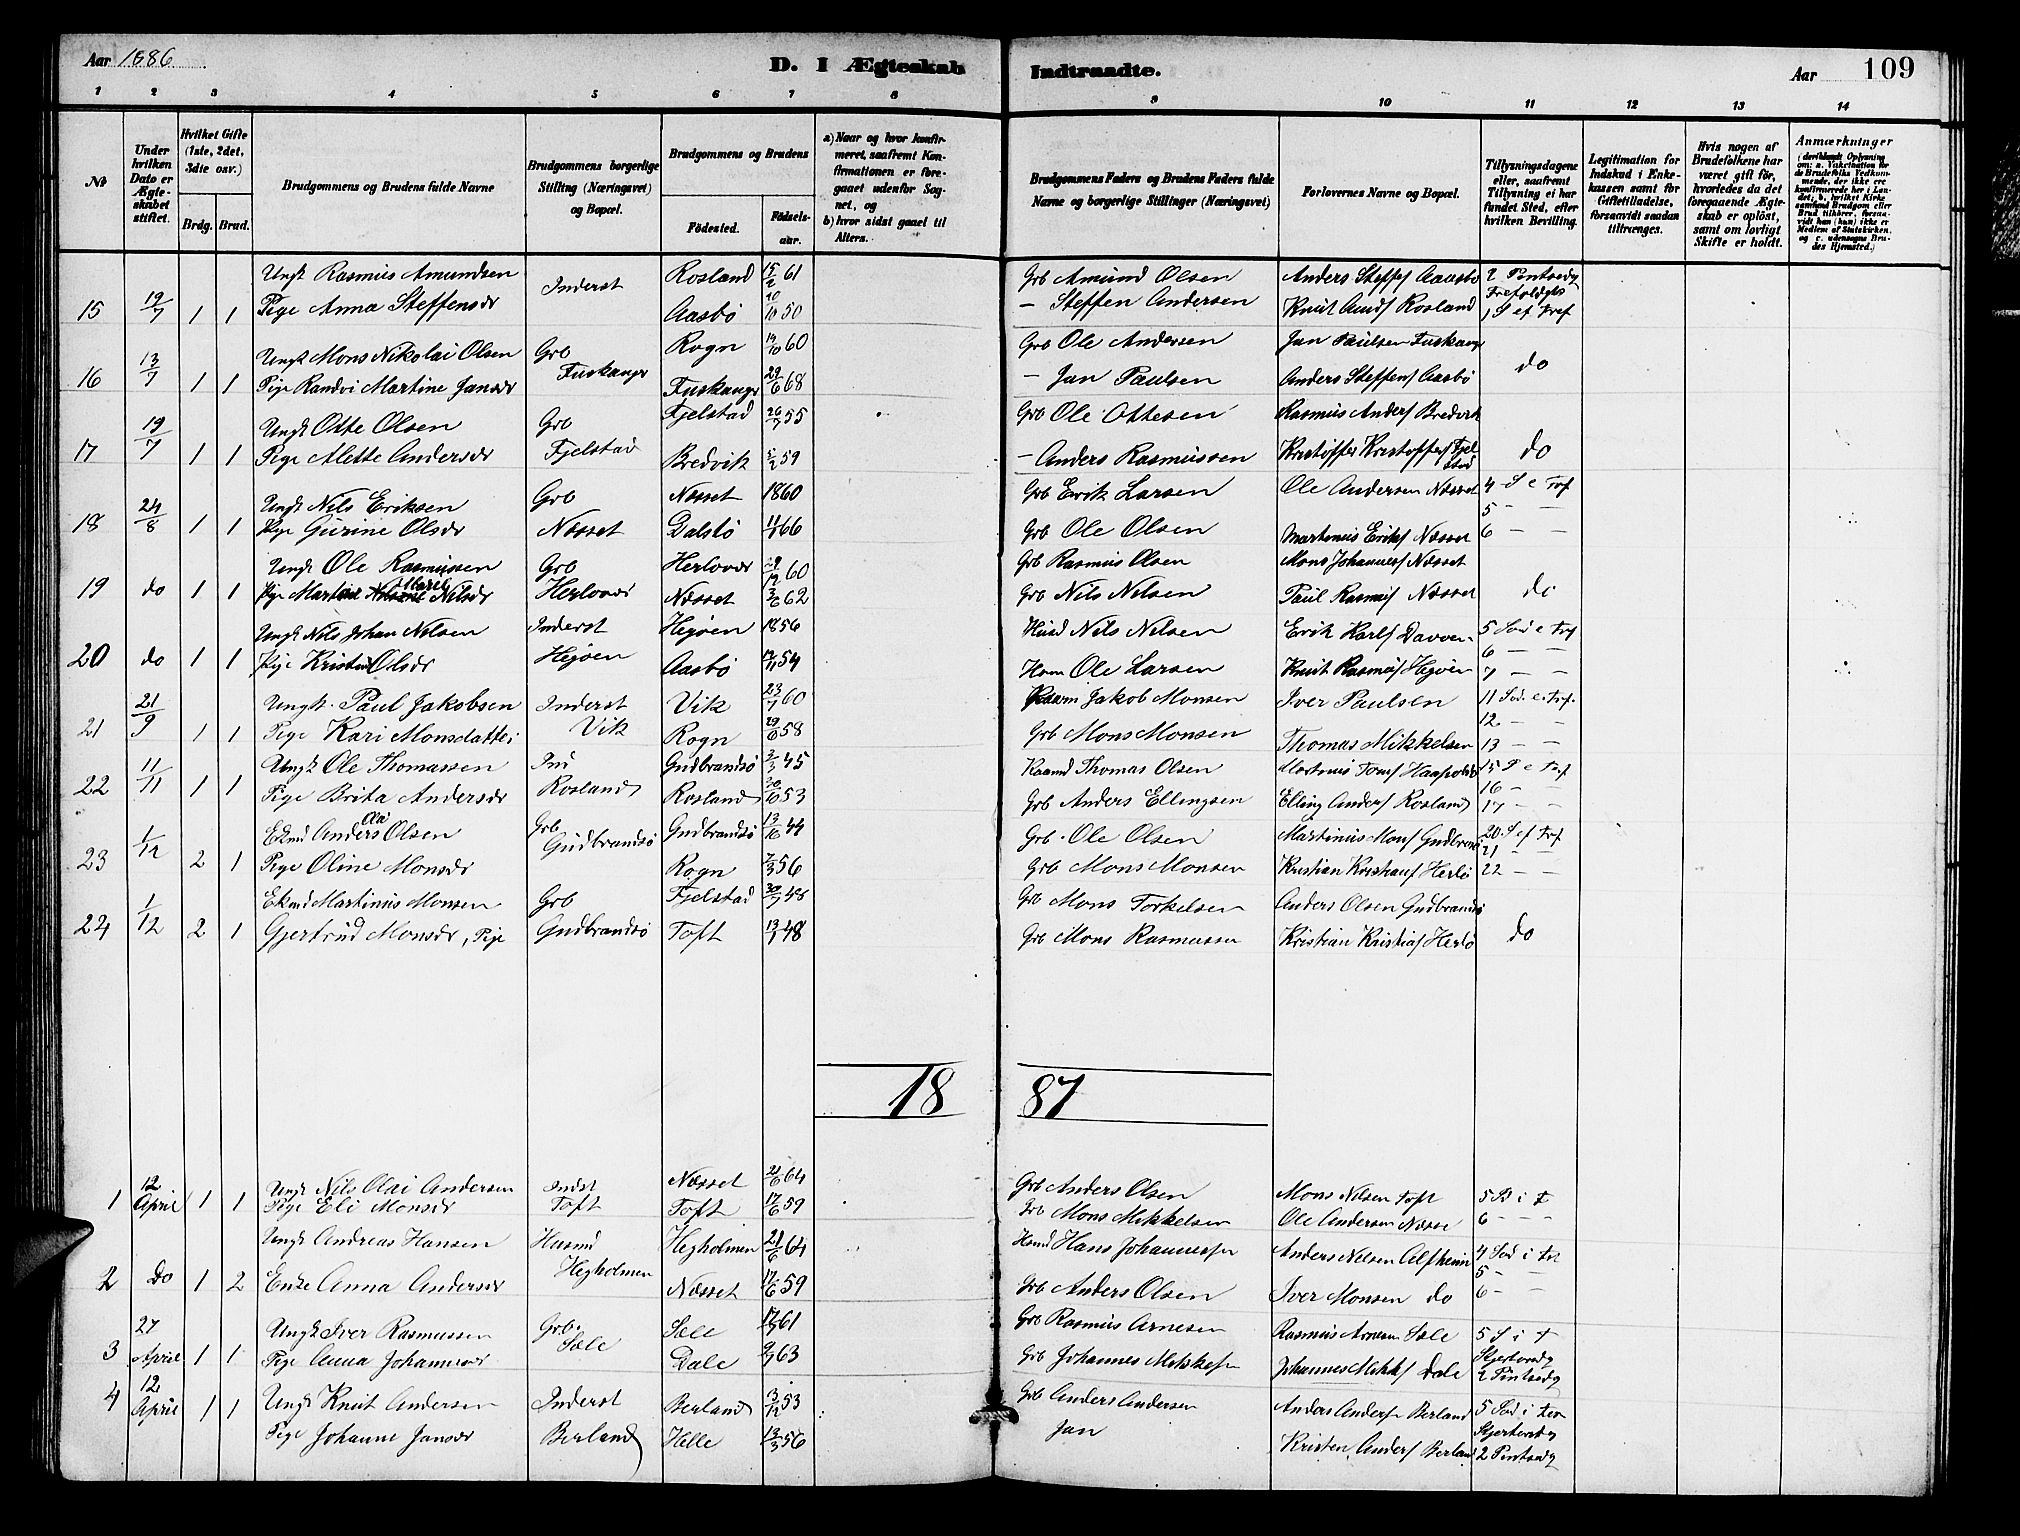 Aar 1886.
D. I Ægteskab Indtraadte.
Aar 109
1 2 3 4 5 6 7 8 9 10 11 12 13 14
No
Under hvilken Dato er Ægteskabet stiftet.
Hvilket Gifte (1ste, 2det, 3dte osv.)
Brdg. Brud.
Brudgommens og Brudens fulde Navne
Brudgommens borgerlige Stilling (Næringsvei) og Bopæl.
Brudgommens og Brudens
Födested.
Födselsaar.
a) Naar og hvor konfirmeret, saafremt Konfirmationen er foregaaet udenfor Sognet, og
b) hvor sidst gaaet til Alters.
Brudgommens Faders og Brudens Faders fulde Navne og borgerlige Stillinger (Næringsvei)
Forlovernes Navne og Bopæl.
Tillysningsdagene eller, saafremt Tillysning ei har fundet Sted, efter hvilken Bevilling.
Legitimation for Indskud i Enkekassen samt for Giftetilladelse, forsaavidt saadan tiltrænges.
Hvis nogen af Brudefolkene har været gift för, hvorledes da det foregaaende Ægteskab er oplöst, samt om lovligt Skifte er holdt.
Anmærkninger
Ungk Rasmus Amundsen Inderst Rosland 15/2 61 Grb Amund Olsen Anders Steffs Aasbö 2 Pintsedg
15 19/7 1 1 Pige Anna Steffensdr Aasbö 10/10 50 - Steffen Andersen Knut Amds Rosland
Ungk Mons Nikolai Olsen Grb Rogn 14/10 60 Grb Ole Andersen Jan Paulsen Fuskanger
16 13/7 1 1 Pige Randvi Martine Jansdr Fuskanger Fuskanger 29/6 68 - Jan Paulsen Anders Steffens Aasbö do
Ungk Otte Olsen Grb Fjelstad 26/7 55 Grb Ole Ottesen Rasmus Anders Bredvik
17 19/7 1 1 Pige Alette Andersdr Fjelstad Bredvik 5/2 59 - Anders Rasmussen Kristoffer Kristoffers Fjelstad do
Ungk Nils Eriksen Grb Næsset 1860 Grb Erik Larsen Ole Andersen Næsset 4 S e Tref
18 24/8 1 1 Pige Gurine Olsdr Næsset Dalsbö 11/1 66 Grb Ole Olsen Martinus Eriks Næsset 5 - - 6 - -
Ungk Ole Rasmussen Grb Herlover 60 Grb Rasmus Olsen Mons Johannes Næsset
19 do 1 1 Pige Martine Marie Nilsdr Herlover Næsset 3/6 62 Grb Nils Nilsen Paul Rasmus Næsset do
Ungk Nils Johan Nilsen Inderst Hejöen 1856 Husd Nils Nilsen Erik Karls 5 Sod e Tref
20 do 1 1 Pige Kristine Olsdr Hejöen Aasbö 54 Ole Larsen Knut Rasmus Hejöen 6 - - 7 - -
Ungk. Paul Jakobsen Inderst Vik 23/7 60 Jakob Monsen Iver Paulsen 11 Sod. e. Tref.
21 21/9 1 1 Pige Kari Monsdatter Vik Rogn 58 Grb Mons Monsen Thomas Mikkelsen 12 - - 13 - -
Ungk Ole Thomassen Ind Gudbrandsö 3/3 45 Thomas Olsen Martinus 15 S e Tref
22 11/11 1 1 Pige Brita Andersdr Rosland Rosland 53 Grb Anders Ellingsen Elling Anders Rosland 16 - 17 - -
Ekmd Anders Olsen Grb Gudbrandsö 13/10 44 Grb. Ole Olsen Martinus Mons Gudbrandsö 20. S ef Tref
23 1/12 2 1 Pige Oline Monsdr Gudbrandsö Rogn 7/3 56 Grb Mons Monsen Kristian Kristians Herlö 21 - - 22 - -
Ekmd Martinus Monsen Grb Fjelstad 48 Grb Mons Torkelsen Anders Olsen Gudbrandsö
24 1/12 2 1 Gjertrud Monsdr, Pige Gudbrandsö Toft 48 Grb Mons Rasmussen Kristian Kristians Herlö do
18 87
Ungk Nils Olai Andersen Indst Næsset 21/6 64 Grb Anders Olsen Mons Nilsen Toft 5 S i F
1 12 April 1 1 Pige Eli Monsdr Toft Toft 17/6 59 Grb Mons Mikkelsen Ole Andersen Næsse 6 - - -
Ungk Andreas Hansen Husmd Hegholmen 21/6 64 Husmd Hans Johannessen Anders Nilsen Alfheim 4 Sod i Fa
2 do 1 2 Enke Anna Andersdr Hegholmen Næsset 17/6 59 Grb Anders Olsen Iver Monsen do 5 - 6 - -
Ungk Iver Rasmussen Grb. Sæle 61 Grb Rasmus Arnesen Rasmus Arnesen Sæle 5 S i F
3 27 April 1 1 Pige Anna Johannesdr Sæle Dale 63 Grb Johannes Mikkelsen Johannes Mikks Dale Skjertorsdg 2 Pintsedg
4 12 April 1 1 Ungk Knut Andersen Inderst Berland 3/12 53 Grb Anders Andersen Anders Anders Berland 5 Sod i
Pige Johanne Jansdr Berland Helle 13/3 56 Jan Kristen Anders Berland Skjertorsdg 2 Pintsedg